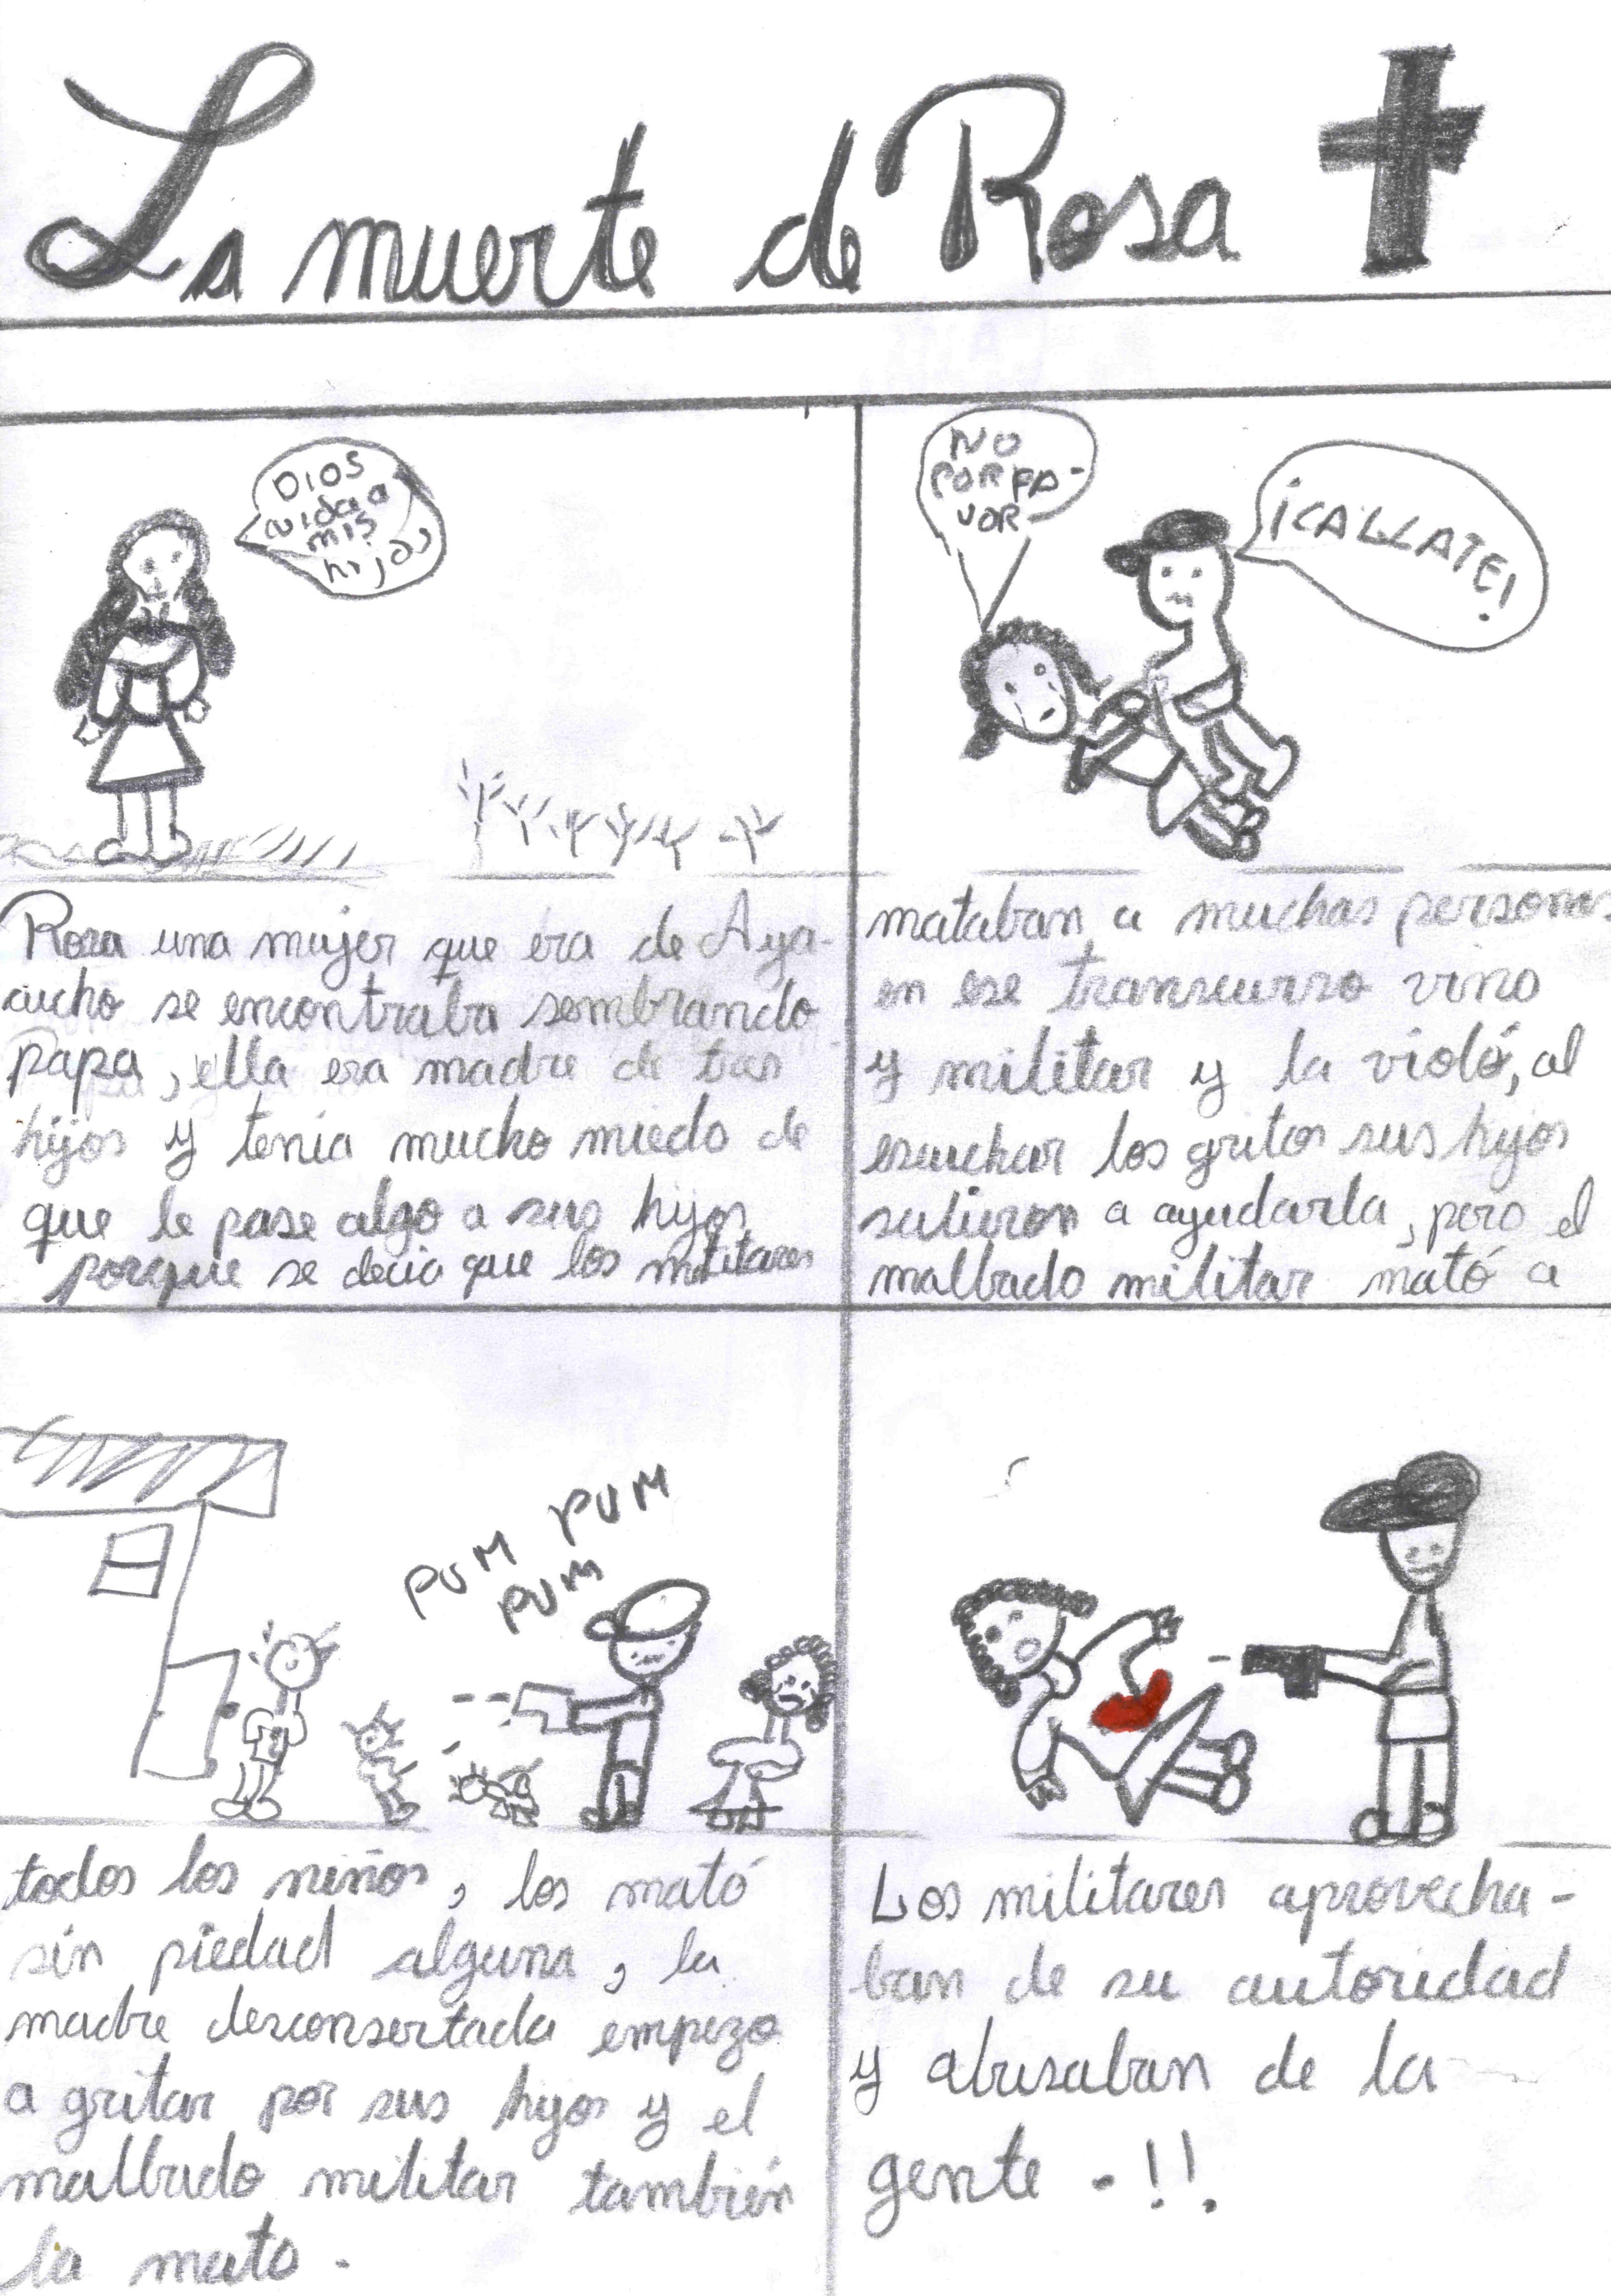 La muerte de Rosa
DIOS
cuida a
mis
hijos
Rosa una mujer que era de Aya-
cucho se encontraba sembrando
papa, ella era madre de tres
hijos y tenia mucho miedo de
que le pase algo a sus hijos
porque se decia que los militares
NO
POR FA-
VOR
¡CALLATE!
mataban a muchas personas
en ese transcurso vino
y militar y la violó, al
escuchar los gritos sus hijos
salieron a ayudarla, pero el
malbado militar mató a
PUM PUM
PUM
todos los niños, los mató
sin piedad alguna, la
madre desconsertada empezo
a gritar por sus hijos y el
malbado militar también
la mato.
Los militares aprovecha-
ban de su autoridad
y abusaban de la
gente - !!.